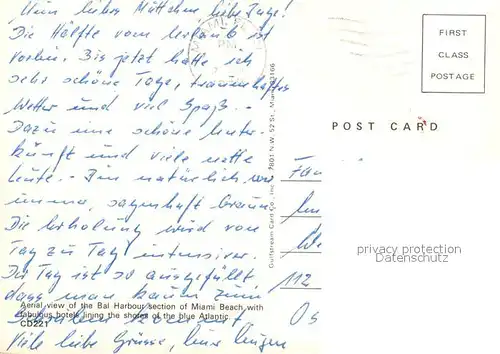 Mein liebes Muttchen liebe Inge!
Die Hälfte vom Urlaub ist
vorbei. Bis jetzt hatte ich
sehr schöne Tage, traumhaftes
Wetter und viel Spaß.
Dazu eine schöne Unter-
kunft und viele nette
Leute. - Bin natürlich wie
immer, sagenhaft braun.
Die Erholung wird von
Tag zu Tag intensiver.
Der Tag ist so ausgefüllt,
dass man kaum zum
Schreiben kommt
Viele liebe Grüsse, Eure
Aerial view of the Bal Harbour section of Miami Beach with
fabulous hotels lining the shores of the blue Atlantic.
CD221
Gulfstream Card Co., Inc., 7801 N.W. 52 St., Miami 33166
PM
FIRST
CLASS
POSTAGE
POST CARD
112
privacy protection
Datenschutz